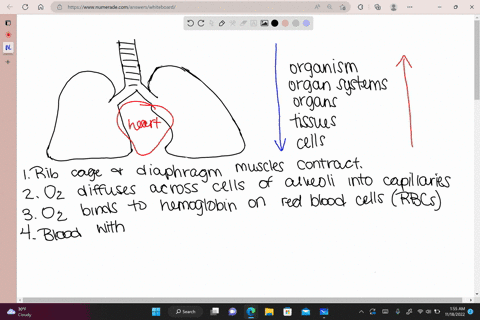 https://www.numerade.com/answers/whiteboard/
heart
organism
organ systems
organs
tissues
cells
1. Rib cage & diaphragm muscles contract.
2. O2 diffuses across cells of alveoli into capillaries
3. O2 binds to hemoglobin on red blood cells (RBCs)
4. Blood with
30°F
Cloudy
Search
1:55 AM
11/18/2022